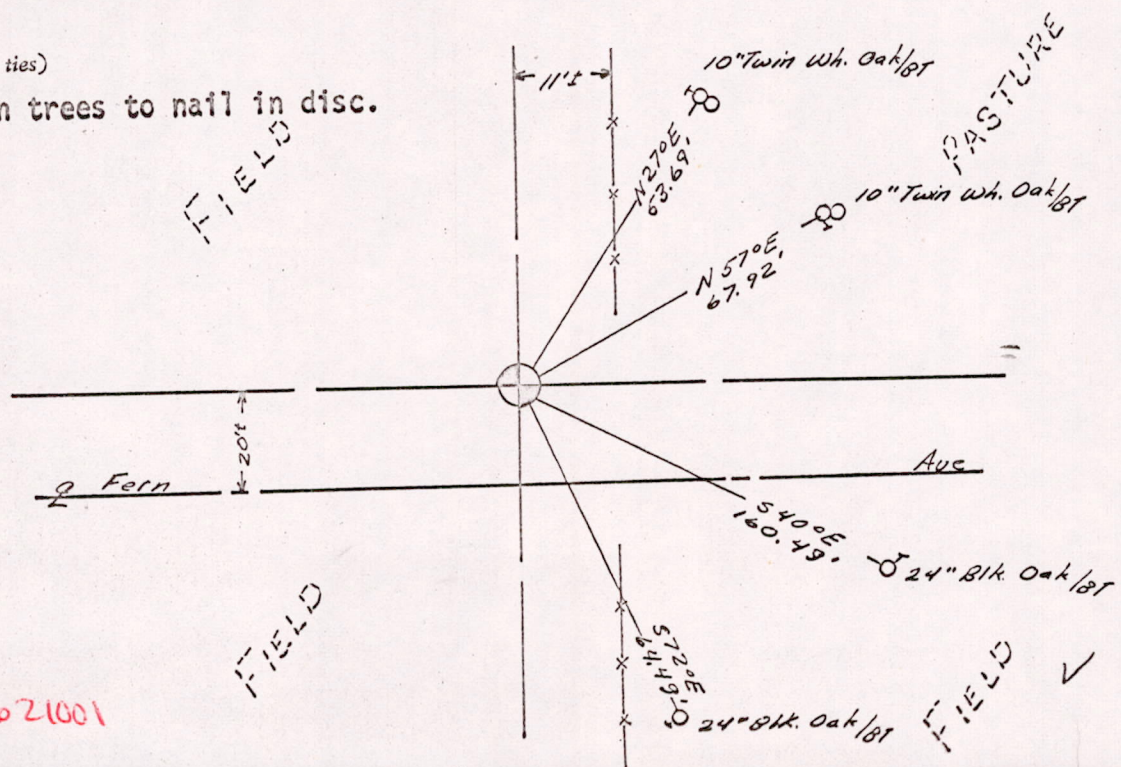 ties)
n trees to nail in disc.
11't
10" Twin Wh. Oak/BT
PASTURE
FIELD
N 27° E
63.69'
10" Twin Wh. Oak/BT
N 57° E
67.92'
20't
Fern Ave
S 40° E
160.49'
24" Blk. Oak/BT
FIELD
S 72° E
64.49'
FIELD
24" Blk. Oak/BT
21001